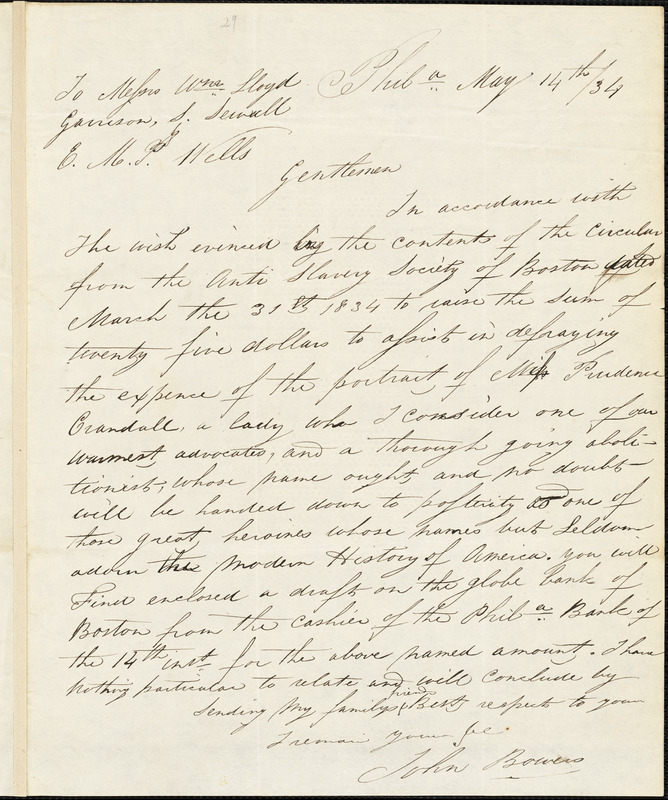 29
To Messrs Wm Lloyd Phila May 14th/34
Garrison, S. Sewall
E. M. P. Wells
Gentlemen
In accordance with
The wish evinced by the content of the Circular
from the Anti Slavery Society of Boston dated
March the 31st 1834 to raise the sum of
twenty five dollars to assist in defraying
the expence of the portrait of Miss Prudence
Crandall, a lady who I consider one of our
warmest advocates, and a thorough going aboli-
tionist, whose name ought and no doubt
will be handed down to posterity as one of
those great, heroines whose names but Seldom
adorn the Modern History of America. You will
Find enclosed a draft on the globe bank of
Boston from the cashier of the Phila Bank of
the 14th inst for the above named amount. I have
Nothing particular to relate and will conclude by
Sending My family & friends Best respect to your
I remain yours &c.
John Bowers